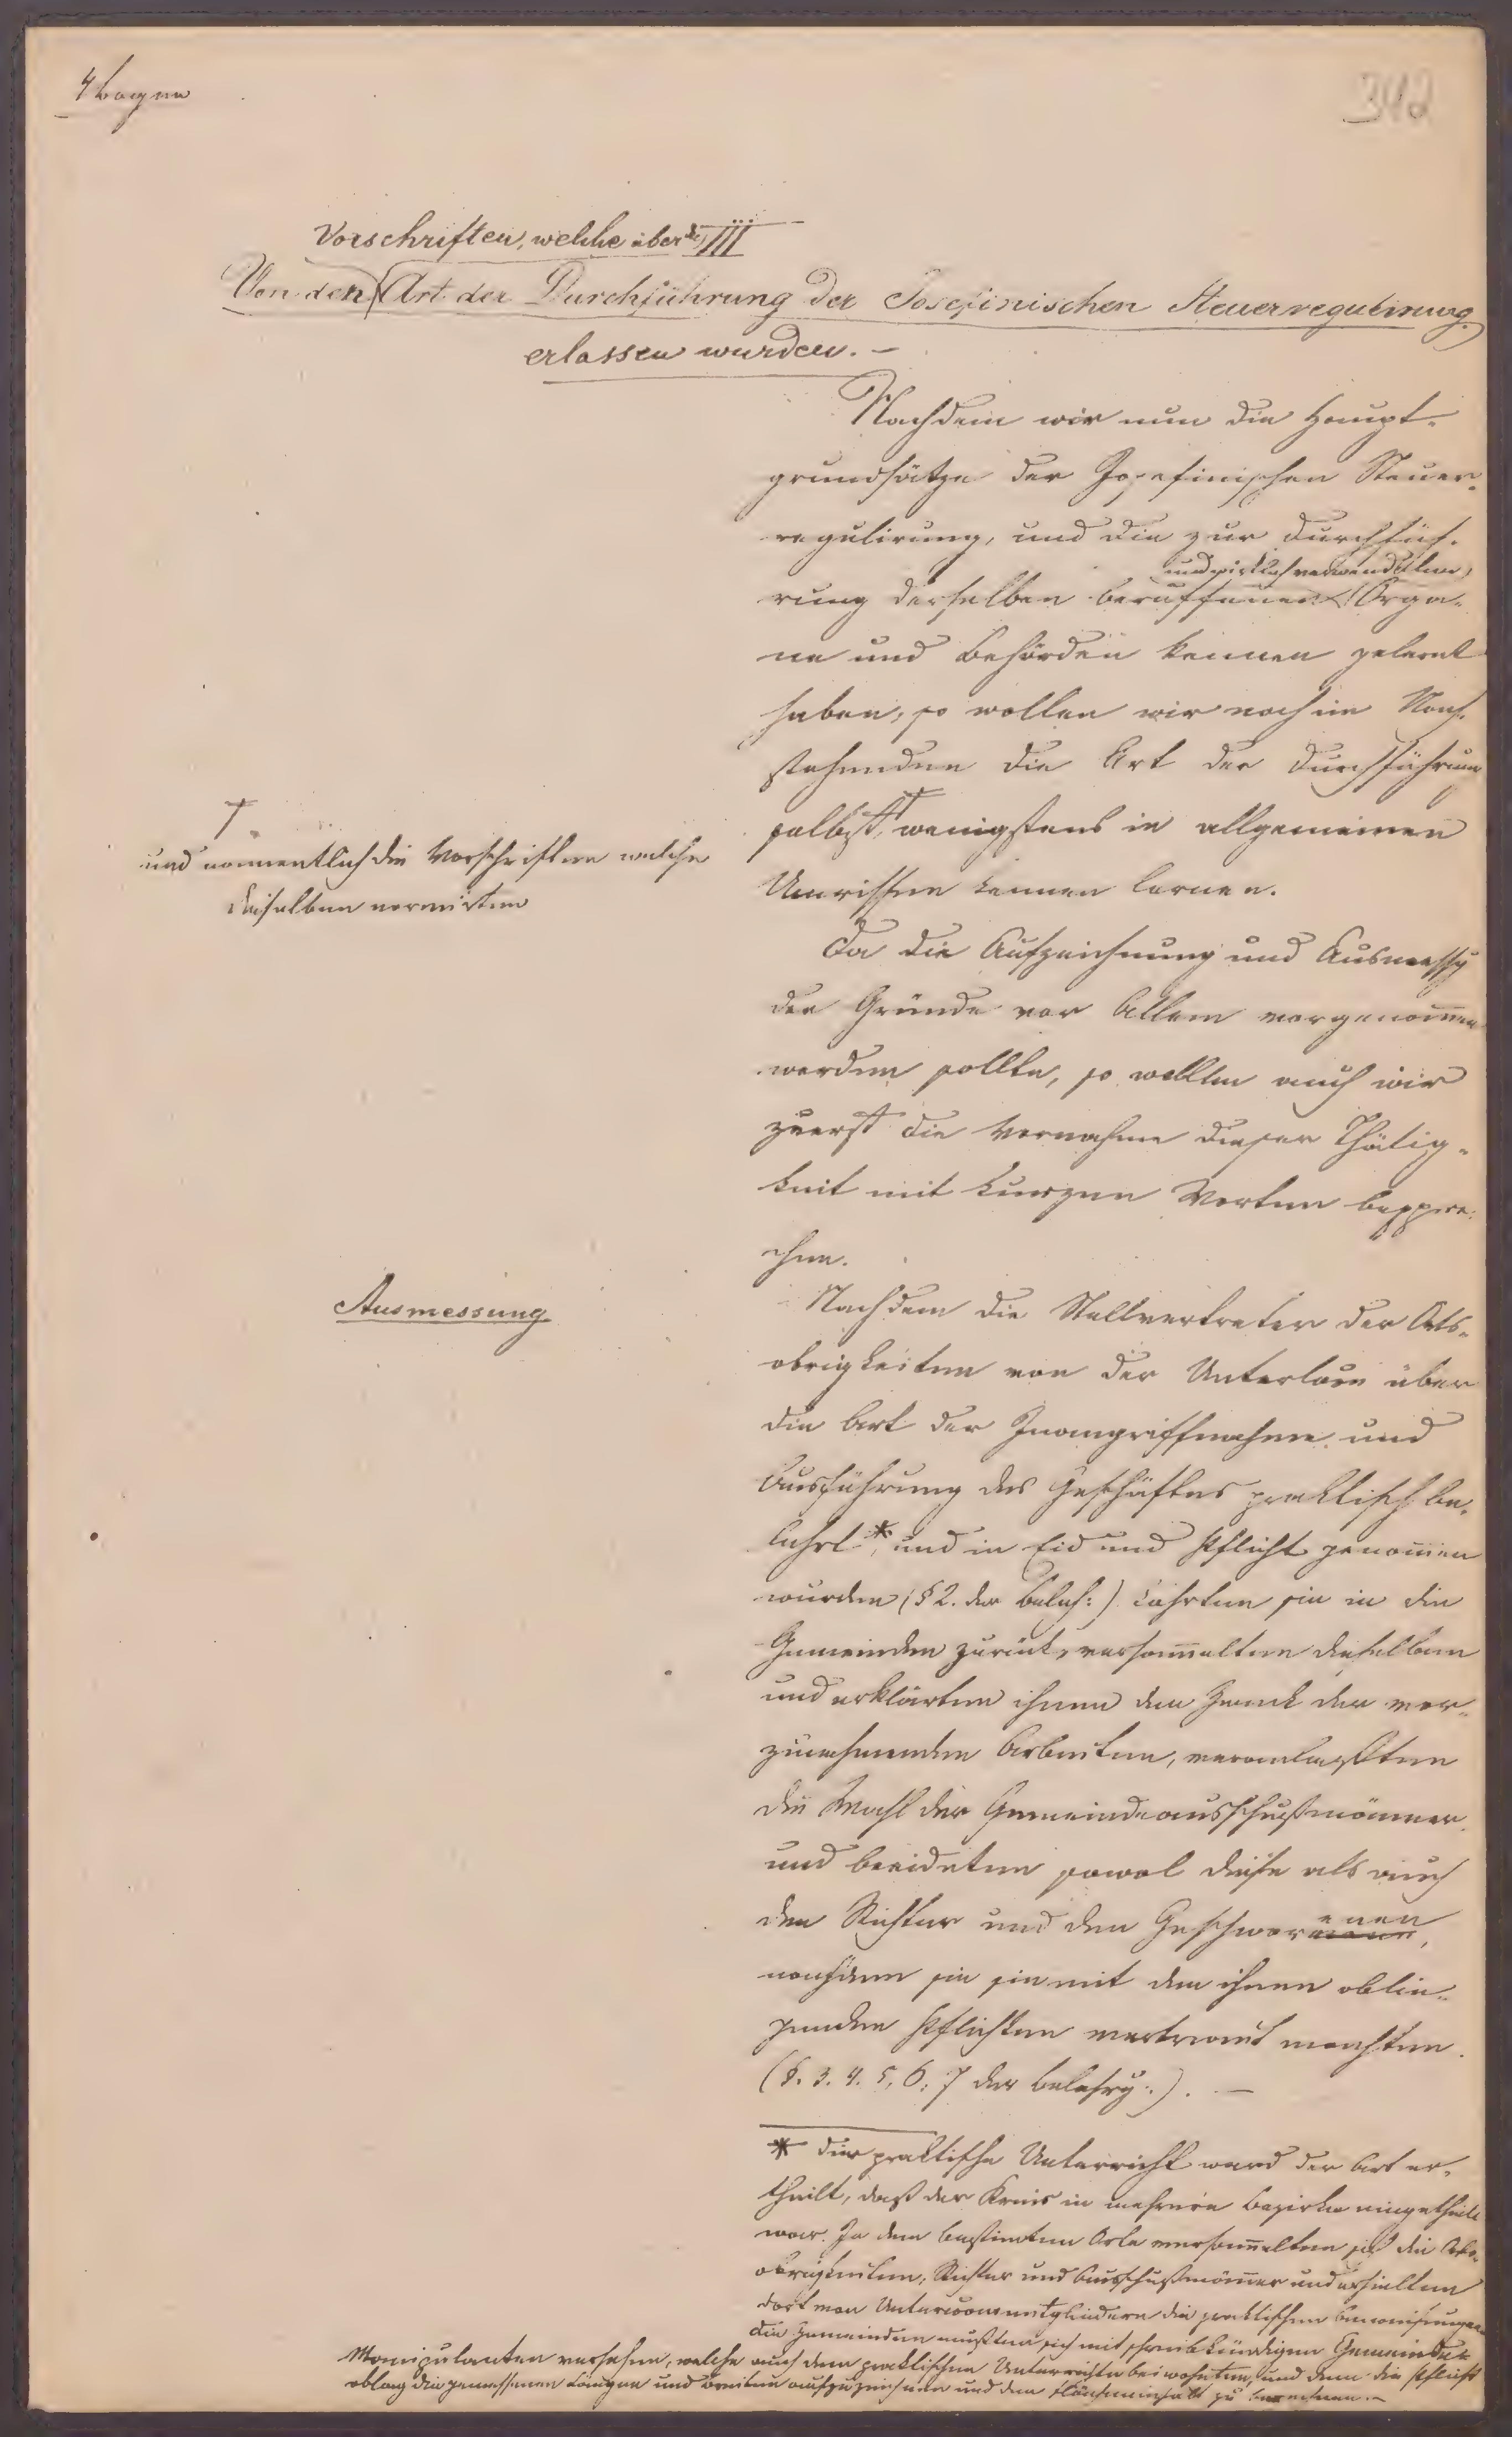 4 Bogen
342
Vorschriften, welche über die III
Von den Art der Durchführung der Josefinischen Steuerregulirung
erlassen wurden. —
Nachdem wir nun die Haupt-
grundsätze der Josefinischen Steuer-
regulirung, und die zur Durchfüh-
und wirklich verwendeten
rung derselben berufenen Orga-
ne und Behörden kennen gelernt
haben, so wollen wir noch im Nach-
stehenden die Art der Durchführung
selbst, † wenigstens in allgemeinen
Umrissen kennen lernen.
†
und namentlich die Vorschriften welche
dieselben normirten
Da die Aufzeichnung und Ausmessg
der Gründe vor Allem vorgenommen
werden sollte, so wollen auch wir
zuerst die Vornahme dieser Thätig-
keit mit kurzen Worten bespre-
chen.
Ausmessung
Nachdem die Stellvertreter der Orts-
obrigkeiten von der Unterkom̅ über
die Art der Inangriffnahme und
Ausführung des Geschäftes praktisch be-
lehrt *, und in Eid und Pflicht genom̅en
wurden (§ 2. der Beleh:) kehrten sie in die
Gemeinden zurück, versam̅elten dieselben
und erklärten ihnen den Zweck der vor-
zunehmenden Arbeiten, veranlaßten
die Wahl der Gemeindeausschußmänner
und beeideten sowol diese als auch
den Richter und den Geschworenen,
nachdem sie sie mit den ihnen oblie-
genden Pflichten vertraut machten.
(§. 3. 4. 5, 6, 7 der Belehrg:). —
* Der praktische Unterricht ward der Art er-
theilt, daß der Kreis in mehrere Bezirke eingetheilt
war. In dem bestimten Orte versam̅elten sich die Orts-
obrigkeiten, Richter und Ausschußmänner und erhielten
dort von Unterkom̅mitgliedern die praktischen Anweisungen
die Gemeinden mußten sich mit schreibkündigen Gemeinde
Manipulanten versehen, welche auch dem praktischen Unterrichte beiwohnten, und denen die Pflicht
oblag die gemessenen Längen und Breiten aufzuzeichnen und den Flächeninhalt zu berechnen. —